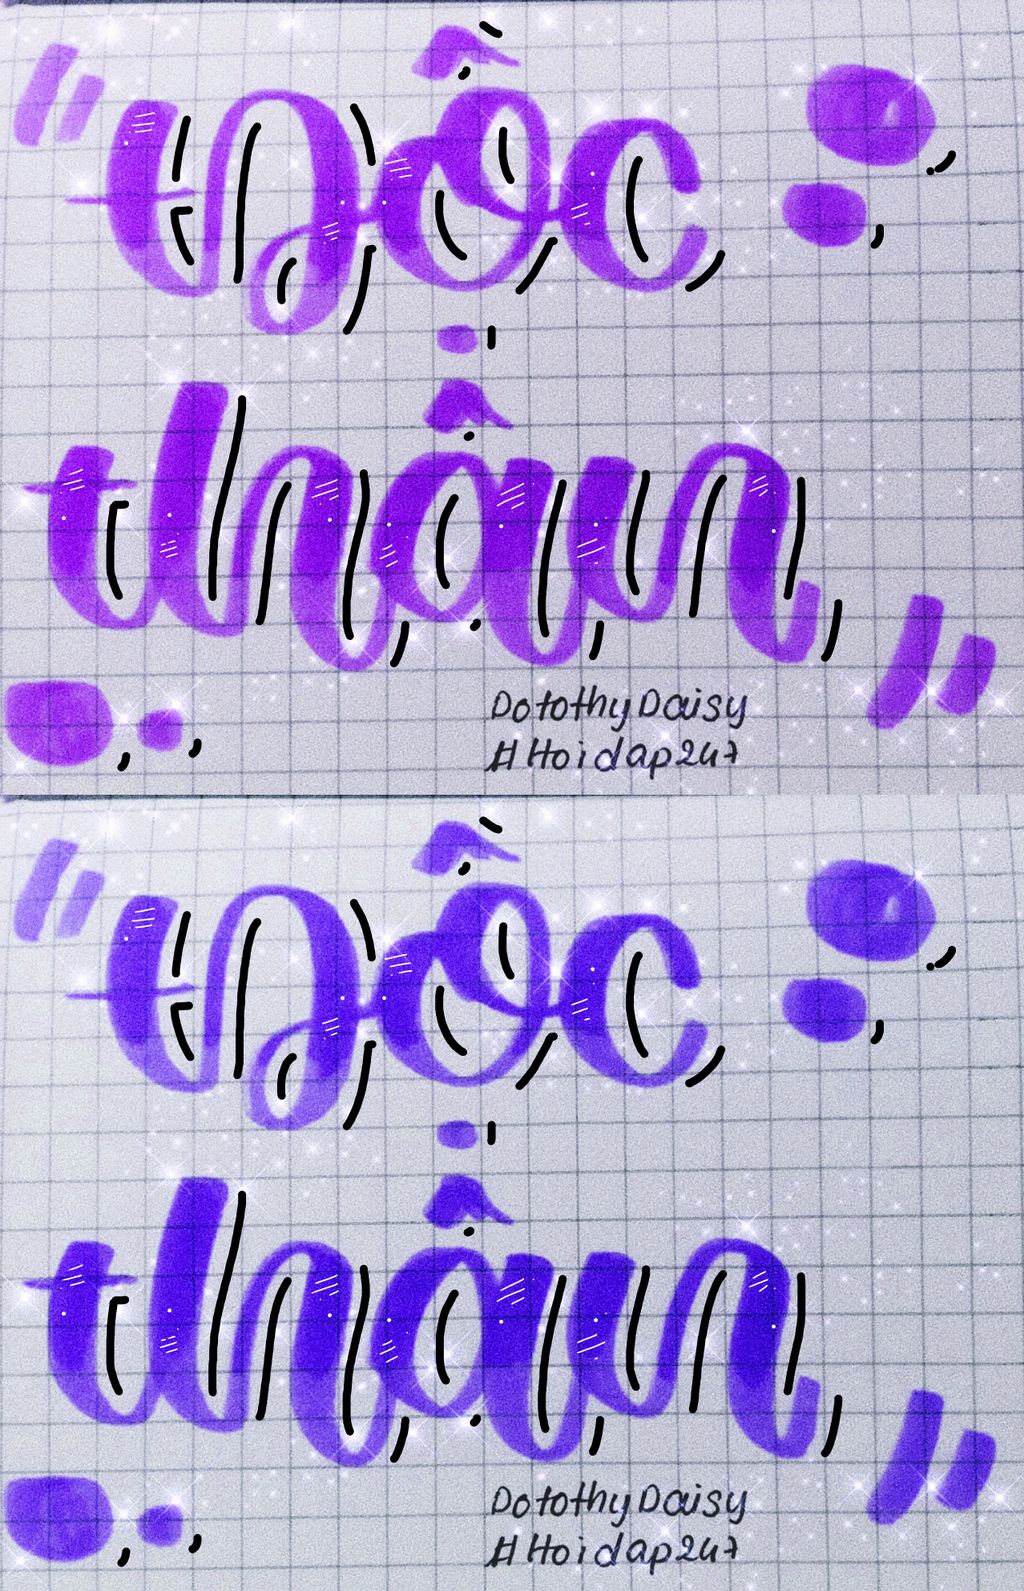 "Độc
thân"
Dotothy Daisy
#Hoidap247
"Độc
thân"
Dotothy Daisy
#Hoidap247